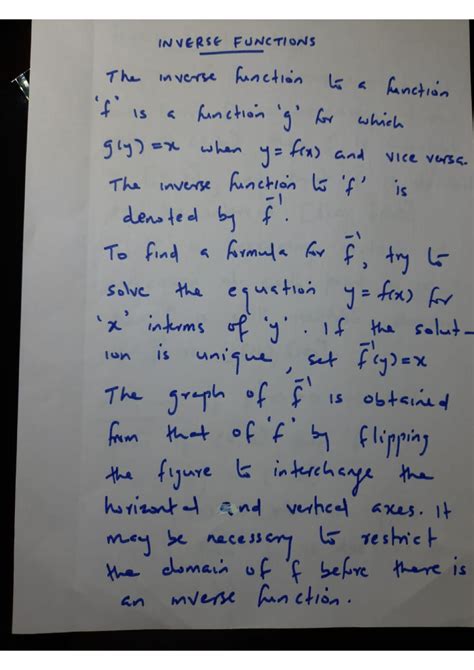 INVERSE FUNCTIONS
The inverse function to a function
'f' is a function 'g' for which
g(y)=x when y=f(x) and vice versa.
The inverse function to 'f' is
denoted by f⁻¹.
To find a formula for f⁻¹, try to
solve the equation y=f(x) for
'x' interms of 'y'. If the solut-
ion is unique, set f⁻¹(y)=x
The graph of f⁻¹ is obtained
from that of 'f' by flipping
the figure to interchange the
horizontal and vertical axes. It
may be necessary to restrict
the domain of f before there is
an inverse function.